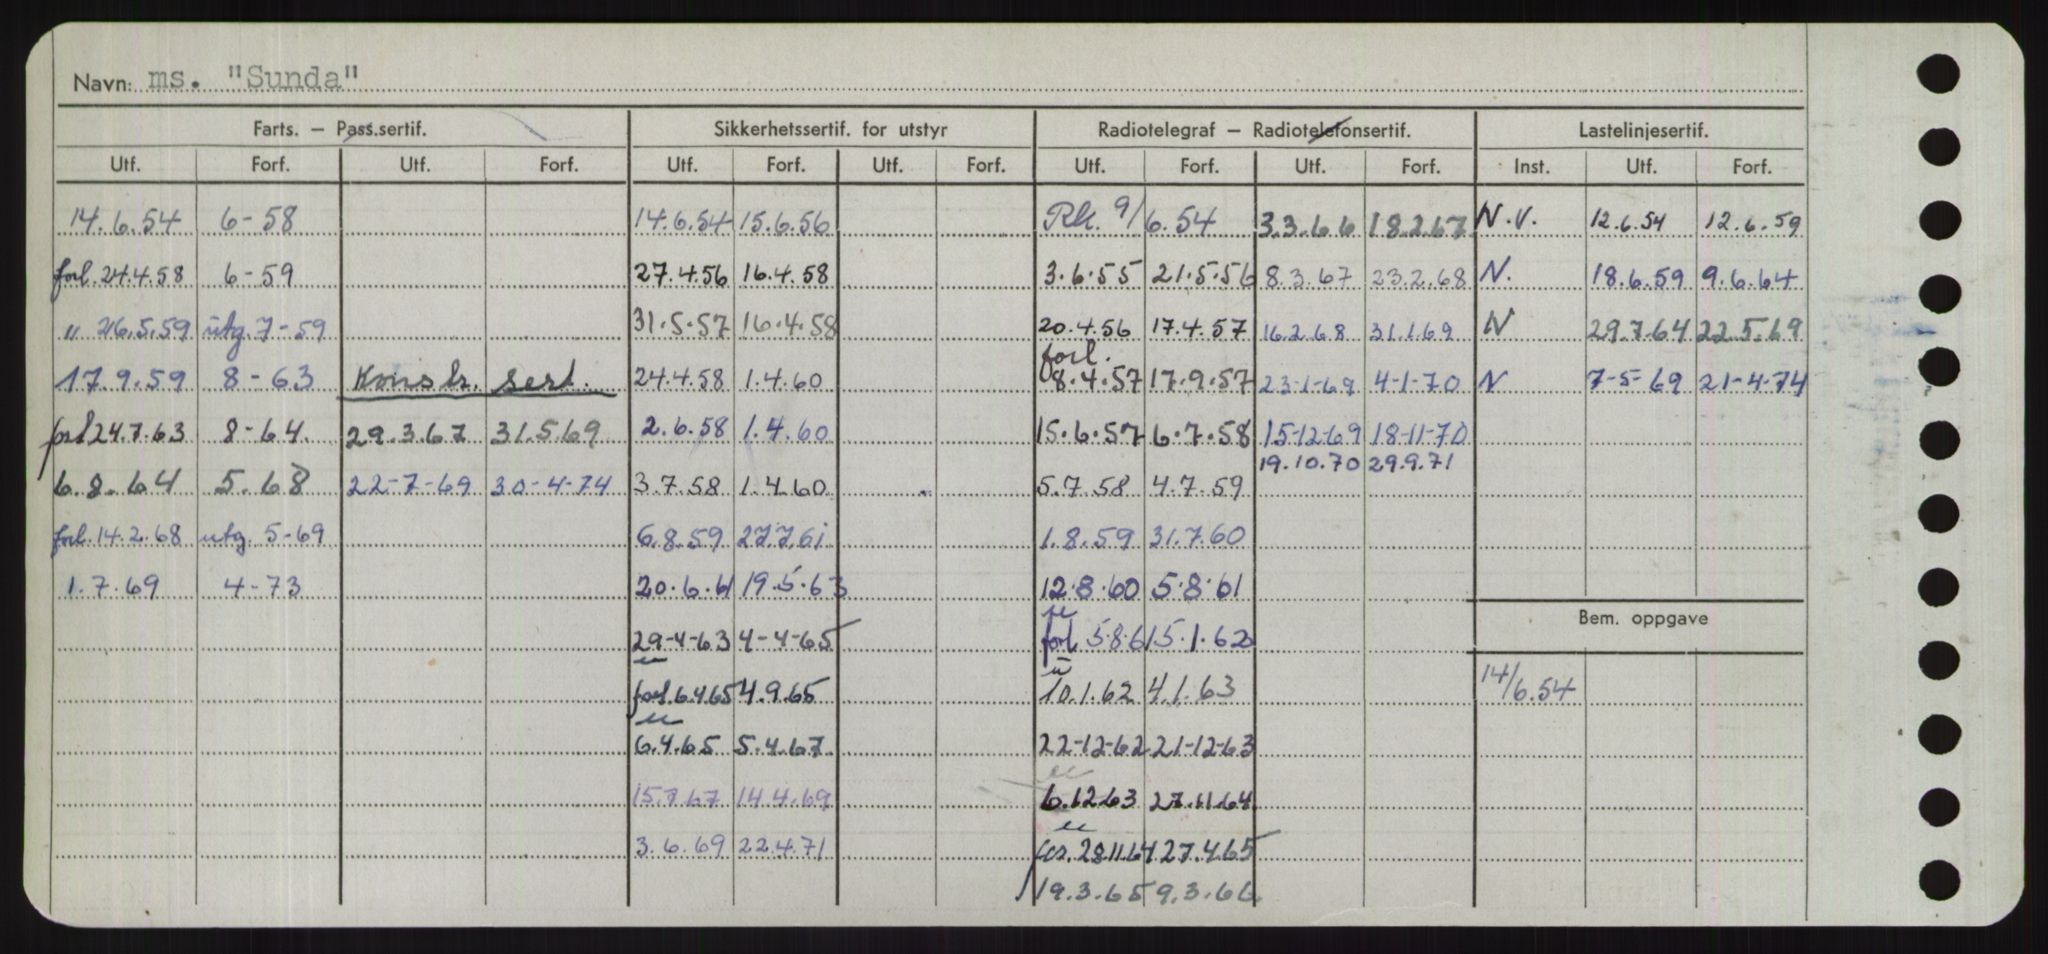 Navn: ms. "Sunda"
Farts. – Pass.sertif. Sikkerhetssertif. for utstyr Radiotelegraf – Radiotelefonsertif. Lastelinjesertif.
Utf. Forf. Utf. Forf. Utf. Forf. Utf. Forf. Utf. Forf. Utf. Forf. Inst. Utf. Forf.
14.6.54 6-58 14.6.54 15.6.56 Rk. 9/6.54 3.3.66 18.2.67 N.V. 12.6.54 12.6.59
forl. 24.4.58 6-59 27.4.56 16.4.58 3.6.55 21.5.56 8.3.67 23.2.68 N. 18.6.59 9.6.64
" 26.5.59 utg. 7-59 31.5.57 16.4.58 20.4.56 17.4.57 16.2.68 31.1.69 N 29.7.64 22.5.69
forl.
17.9.59 8-63 Konstr. sert. 24.4.58 1.4.60 8.4.57 17.9.57 23-1-69 4-1-70 N 7-5-69 21-4-74
forl 24.7.63 8-64. 29.3.67 31.5.69 2.6.58 1.4.60 15.6.57 6.7.58 15-12-69 18-11-70
19.10.70 29.9.71
6.8.64 5.68 22-7-69 30-4-74 3.7.58 1.4.60 5.7.58 4.7.59
forl. 14.2.68 utg. 5-69 6.8.59 27.7.61 1.8.59 31.7.60
1.7.69 4-73 20.6.61 19.5.63 12.8.60 5.8.61
Bem. oppgave
29-4-63 4-4-65 forl. 5.8.61 5.1.62
forl. 6.4.65 4.9.65 10.1.62 4.1.63 14/6.54
6.4.65 5.4.67 22-12-62 21-12-63
15.7.67 14.4.69 6.12.63 27.11.64
3.6.69 22.4.71 28.11.64 27.4.65
19.3.65 9.3.66